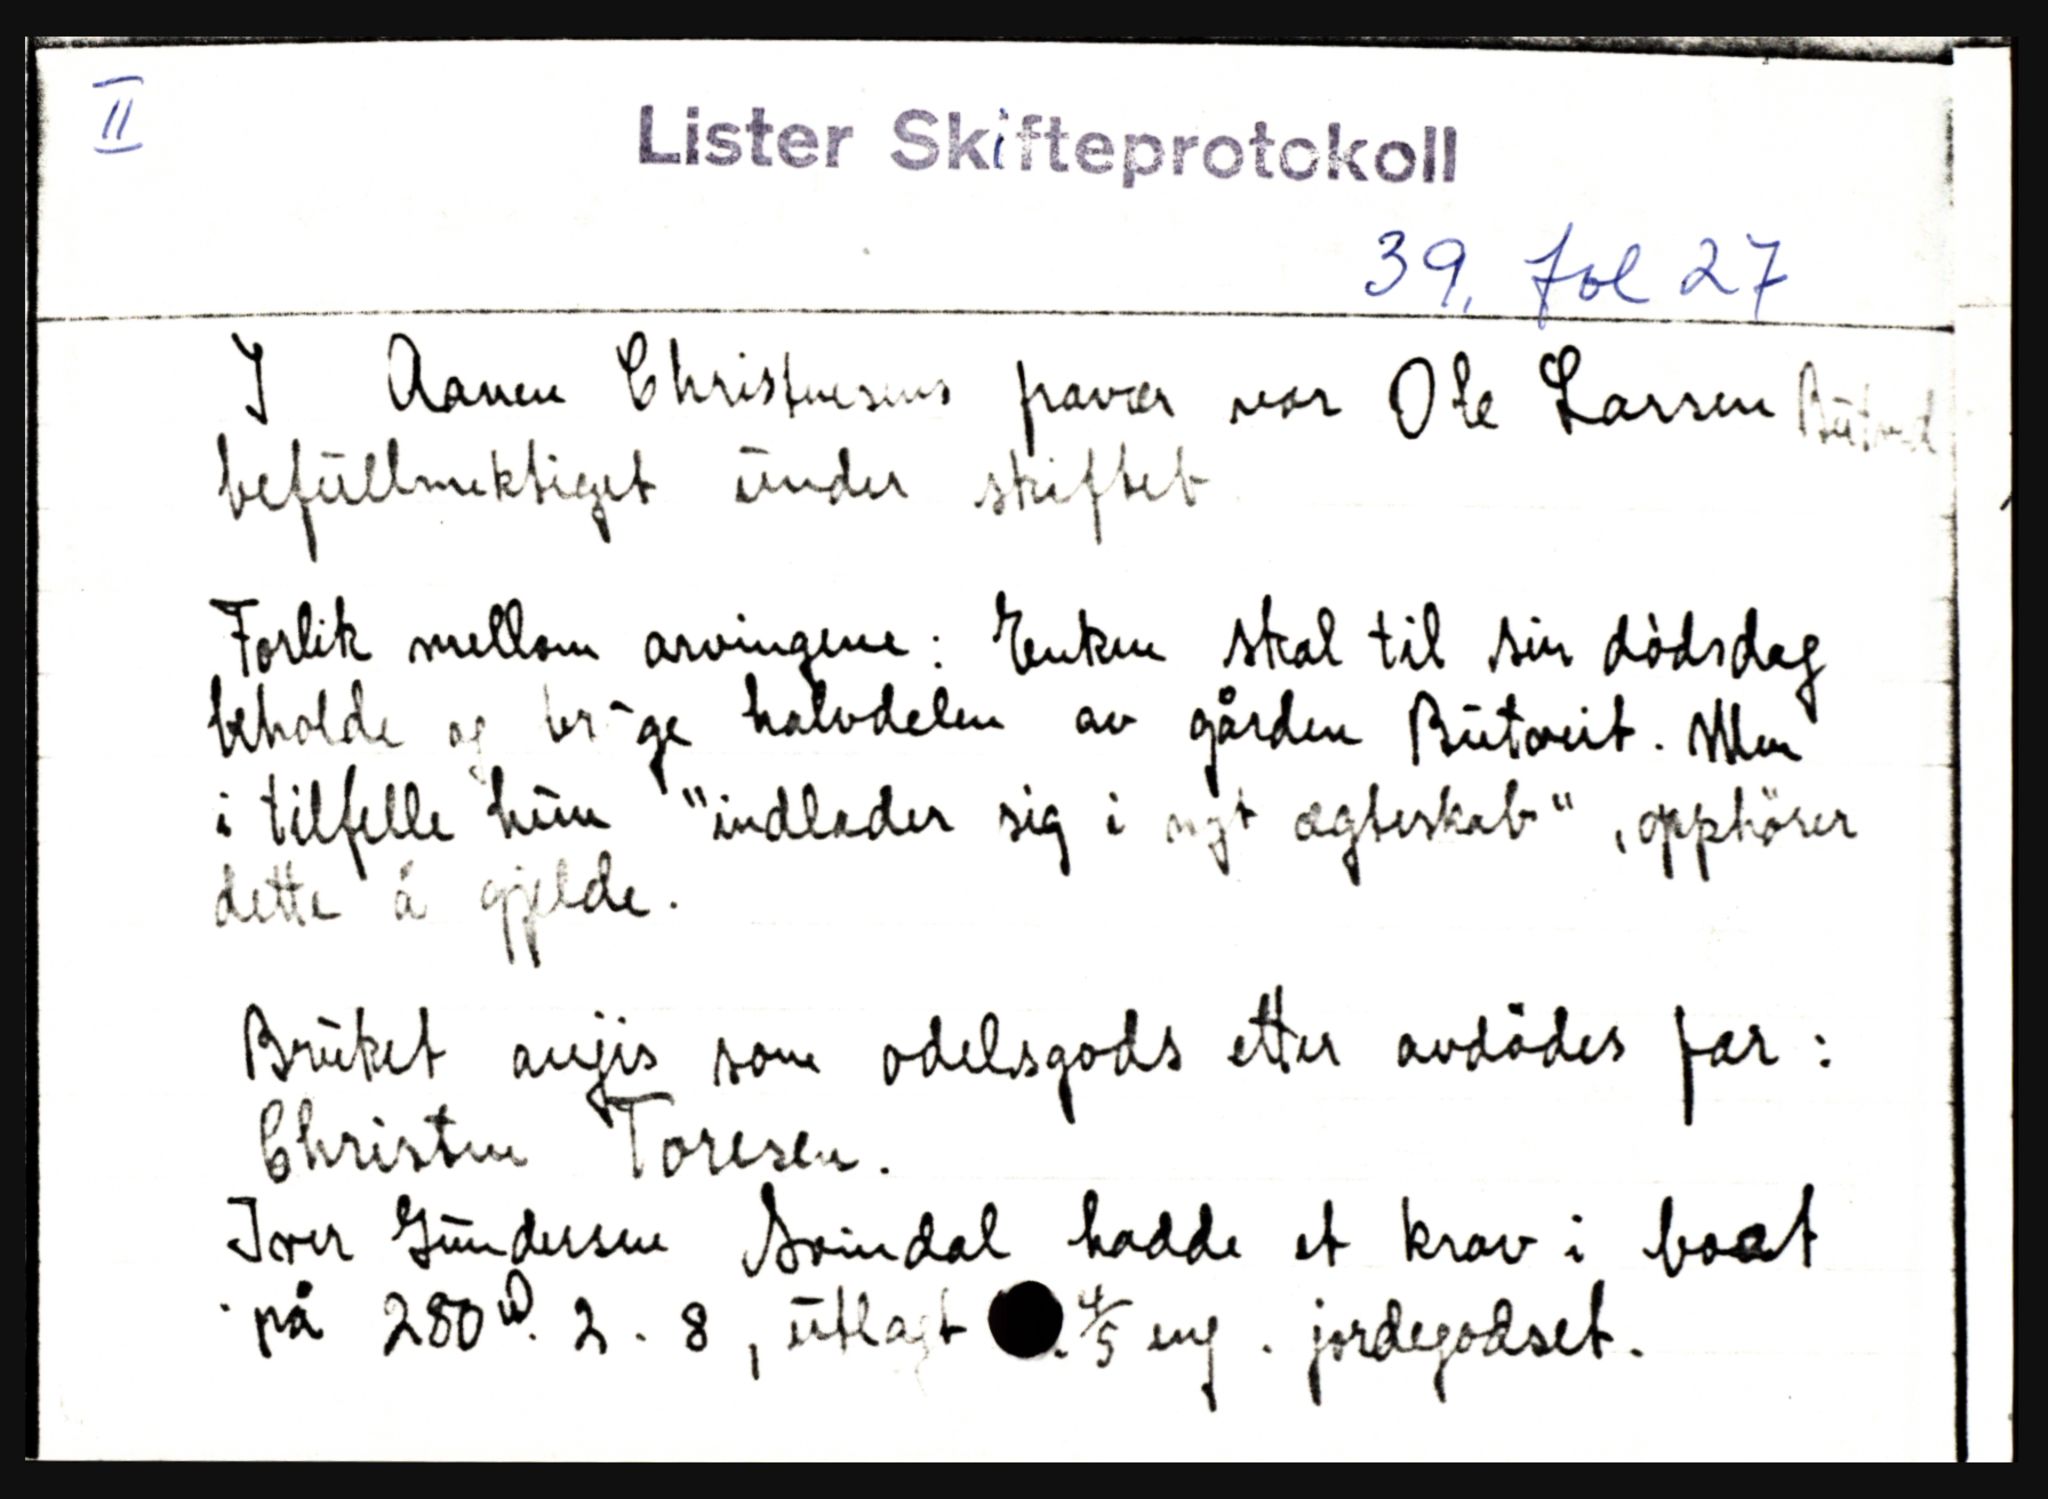 II
Lister Skifteprotokoll
39, fol 27
I Aanen Christensens fravær var Ole Larsen
befullmektiget under skiftet
Forlik mellom arvingene: Enken skal til sin dødsdag
beholde og bruge halvdelen av gården Butveit. Men
i tilfelle hun "indlader sig i nyt ægteskab", opphører
dette å gjelde.
Bruket angis som odelsgods etter avdødes far:
Christen Toresen.
Iver Gundersen Svindal hadde et krav i boet
på 280 rd. 2. 8, utlagt 4/5 eng. jordegodset.